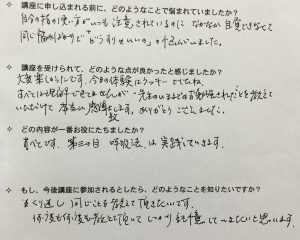 ❖ 講座に申し込まれる前に、どのようなことで悩まれていましたか？
自分の指の使い方がいつも注意されているのに なかなか 出来なくて
同じ ばかりで"どうすりゃいいの"と悩んでいました。
❖ 講座を受けられて、どのような点が良かったと感じましたか？
大変楽しかったです。今日の体験はラッキーでした。
すべては理解できてませんが 先生の今までのご勉強されたことを教えて
いただけて 本当に感謝致します。ありがとうございました。
❖ どの内容が一番お役にたちましたか？
すべてです。第三の目 呼吸法は実践していきます。
❖ もし、今後講座に参加されるとしたら、どのようなことを知りたいですか？
くり返し 同じことを教えて頂きたいです。
何度も何度も教えて頂いて しっかり記憶していきたいと思います。